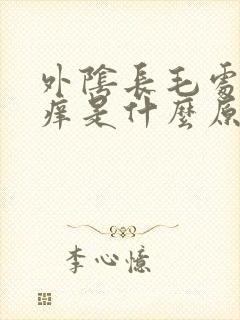 外陰長毛處
癢是什麼原
李心憶